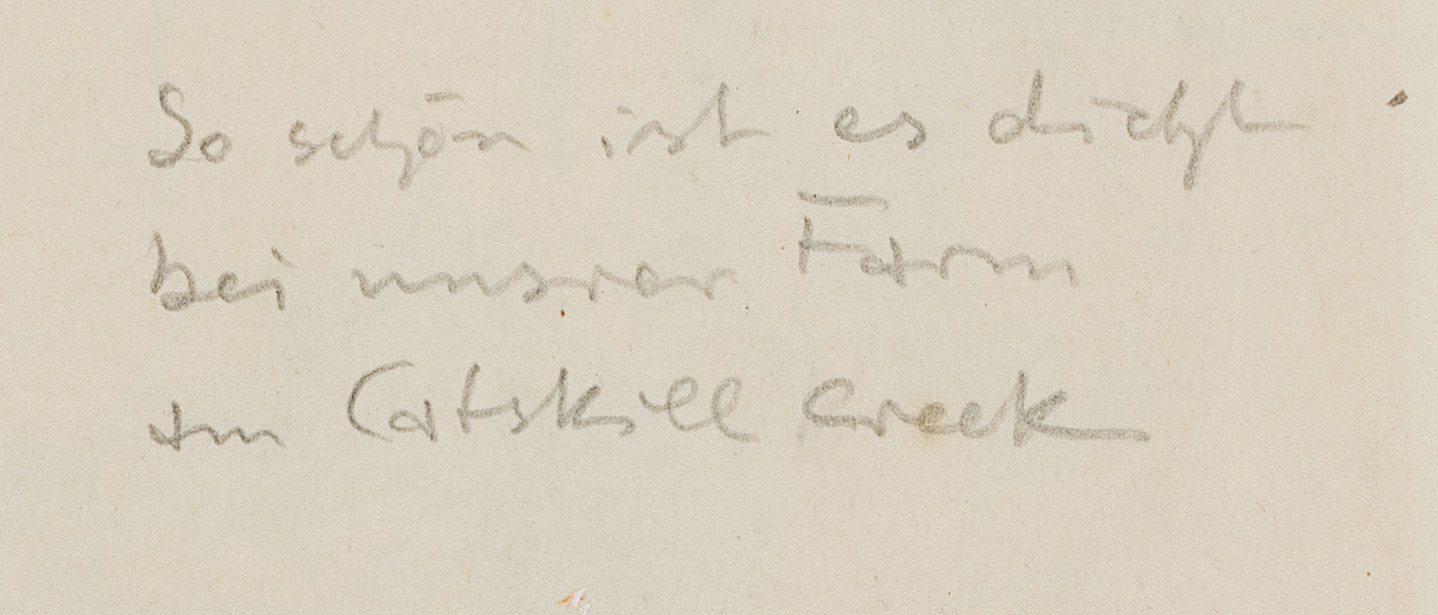 So schön ist es dicht
bei unsrer Farm
am Catskill Creek